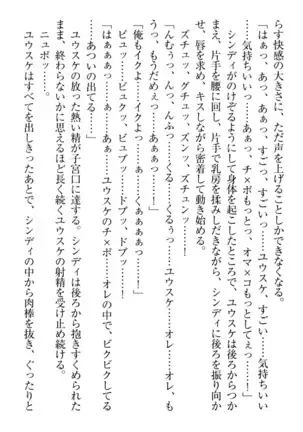 らす快感の大きさに、ただ声を上げることしかできなくなる。
「はぁっ、あっ、あぁっ、すごっ、すごいっ……ユウスケ、すごい……気持ちいい
……気持ちいいっ……あっ、あっ、チ×ポもっとっ、オマ×コもしてぇっ……！」
シンディがのけぞるようにして身体を起こしたところで、ユウスケは後ろからつか
まえ、片手を腰に回し、片手で乳房を揉みしだきながら、シンディに後ろを振り向か
せ、唇を求め、キスしながら密着して動き始める。
ズチュッ、グチュッ、ズンッ、ズチュンッ……！
「んむぅっ、んっ、んふっ……くる……くるぅっ……ユウスケ……オレ……オレ、も
うっ……もうだめぇっ……！」
「俺もイクよっ……イクよっ……くぁぁぁぁっ……！」
ビューッ、ビュクッ、ビュブッ……ドブッ、ドブッ……！
「はぁぁぁっ……あぁぁぁっ……ユウスケのチ×ポ……オレの中で、ビクビクしてる
……あついの出てる……」
ユウスケの放った熱い精が子宮口に達する。シンディは後ろから抱きすくめられた
まま、終わらないかに思えるほど長く続くユウスケの射精を受け止め続ける。
ニュポッ……。
ユウスケはすべてを出しきったあとで、シンディの中から肉棒を抜き、ぐったりと